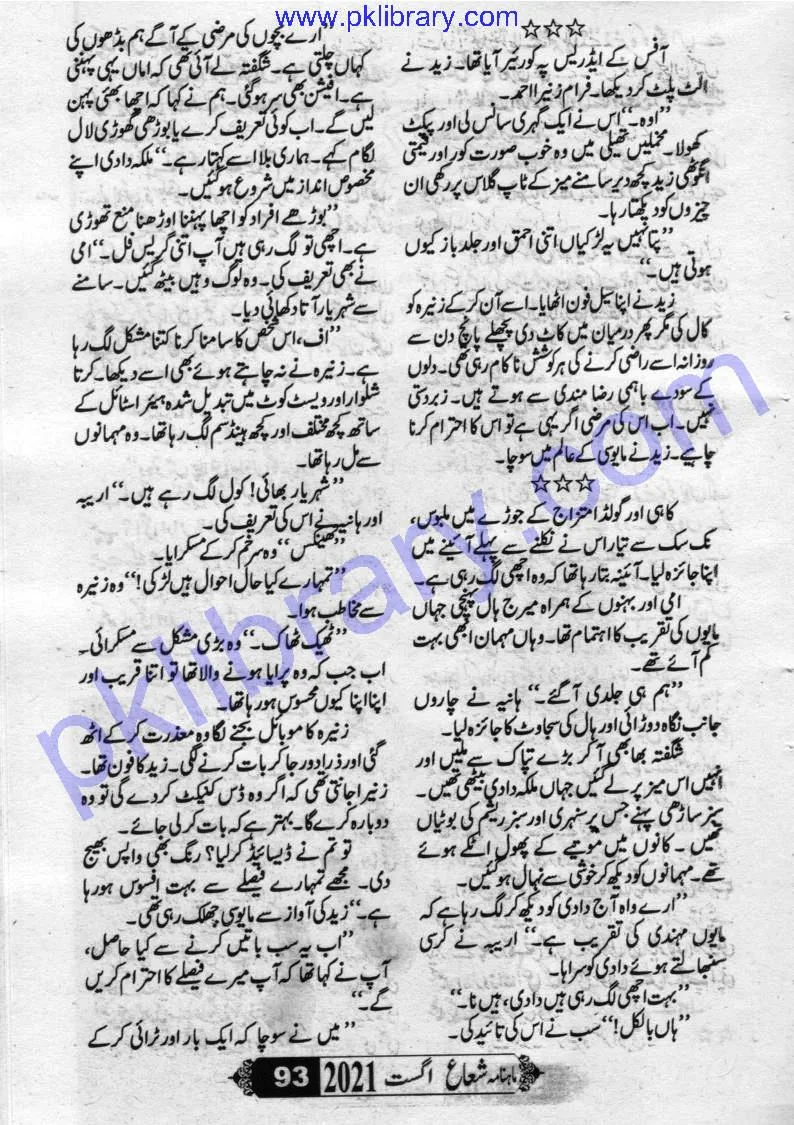 www.pklibrary.com
☆☆☆
آفس کے ایڈریس پہ کورئیر آیا تھا۔ زید نے
الٹ پلٹ کر دیکھا۔ فرام زنیرا احمد۔
”اوہ۔“ اس نے ایک گہری سانس لی اور پیکٹ
کھولا۔ مخملیں تھیلی میں وہ خوب صورت کور اور قیمتی
انگوٹھی زید کچھ دیر سامنے میز کے ٹاپ گلاس پر رکھی ان
چیزوں کو دیکھتا رہا۔
”پتا نہیں یہ لڑکیاں اتنی احمق اور جلد باز کیوں
ہوتی ہیں۔“
زید نے اپنا سیل فون اٹھایا۔ اسے آن کر کے زنیرہ کو
کال کی مگر پھر درمیان میں کاٹ دی پچھلے پانچ دن سے
روزانہ اسے راضی کرنے کی ہر کوشش ناکام رہی تھی۔ دلوں
کے سودے باہمی رضا مندی سے ہوتے ہیں۔ زبردستی
نہیں۔ اب اس کی مرضی اگر یہی ہے تو اس کا احترام کرنا
چاہیے۔ زید نے مایوسی کے عالم میں سوچا۔
☆☆☆
کاہی اور گولڈ امتزاج کے جوڑے میں ملبوس،
نک سک سے تیار اس نے نکلنے سے پہلے آئینے میں
اپنا جائزہ لیا۔ آئینہ بتا رہا تھا کہ وہ اچھی لگ رہی ہے۔
امی اور بہنوں کے ہمراہ میرج ہال پہنچی جہاں
مایوں کی تقریب کا اہتمام تھا۔ وہاں مہمان ابھی بہت
کم آئے تھے۔
”ہم ہی جلدی آ گئے۔“ ہانیہ نے چاروں
جانب نگاہ دوڑائی اور ہال کی سجاوٹ کا جائزہ لیا۔
شگفتہ بھابھی آ کر بڑے تپاک سے ملیں اور
انہیں اس میز پر لے گئیں جہاں ملکہ دادی بیٹھی تھیں۔
سبز ساڑھی پہنے جس پر سنہری اور سبز ریشم کی بوٹیاں
تھیں۔ کانوں میں موتیے کے پھول اٹکے ہوئے
تھے۔ مہمانوں کو دیکھ کر خوشی سے نہال ہو گئیں۔
”ارے واہ آج دادی کو دیکھ کر لگ رہا ہے کہ
مایوں مہندی کی تقریب ہے۔“ اریبہ نے کرسی
سنبھالتے ہوئے دادی کو سراہا۔
”بہت اچھی لگ رہی ہیں دادی، ہیں نا۔“
”ہاں بالکل!“ سب نے اس کی تائید کی۔
”ارے بچوں کی مرضی کے آگے ہم بڈھوں کی
کہاں چلتی ہے۔ شگفتہ لے آئی تھی کہ اماں یہی پہننی
ہے۔ افیشن بھی سر ہو گئی۔ ہم نے کہا کہ اچھا بھئی پہن
لیں گے۔ اب کوئی تعریف کرے یا بوڑھی گھوڑی لال
لگام کہے۔ ہماری بلا اسے کہتا رہے۔“ ملکہ دادی اپنے
مخصوص انداز میں شروع ہو گئیں۔
”بوڑھے افراد کو اچھا پہننا اوڑھنا منع تھوڑی
ہے۔ اچھی تو لگ رہی ہیں آپ اتنی گریس فل۔“ امی
نے بھی تعریف کی۔ وہ لوگ وہیں بیٹھ گئیں۔ سامنے
سے شہریار آتا دکھائی دیا۔
”اف، اس شخص کا سامنا کرنا کتنا مشکل لگ رہا
ہے۔ زنیرہ نے نہ چاہتے ہوئے بھی اسے دیکھا۔ کرتا
شلوار اور ویسٹ کوٹ میں تبدیل شدہ ہیئر اسٹائل کے
ساتھ کچھ مختلف اور کچھ ہینڈسم لگ رہا تھا۔ وہ مہمانوں
سے مل رہا تھا۔
”شہریار بھائی! کول لگ رہے ہیں۔“ اریبہ
اور ہانیہ نے اس کی تعریف کی۔
”تھینکس“ وہ سر خم کر کے مسکرایا۔
”تمہارے کیا حال احوال ہیں لڑکی!“ وہ زنیرہ
سے مخاطب ہوا۔
”ٹھیک ٹھاک۔“ وہ بڑی مشکل سے مسکرائی۔
اب جب کہ وہ پرایا ہونے والا تھا تو اتنا قریب اور
اپنا اپنا کیوں محسوس ہو رہا تھا۔
زنیرہ کا موبائل بجنے لگا وہ معذرت کر کے اٹھ
گئی اور ذرا دور جا کر بات کرنے لگی۔ زید کا فون تھا۔
زنیرا جانتی تھی کہ اگر وہ ڈس کنیکٹ کر دے گی تو وہ
دوبارہ کرے گا۔ بہتر ہے کہ بات کر لی جائے۔
تو تم نے ڈیسائیڈ کر لیا؟ رنگ بھی واپس بھیج
دی۔ مجھے تمہارے فیصلے سے بہت افسوس ہو رہا
ہے۔“ زید کی آواز سے مایوسی چھلک رہی تھی۔
”اب یہ سب باتیں کرنے سے کیا حاصل،
آپ نے کہا تھا کہ آپ میرے فیصلے کا احترام کریں
گے۔“
”میں نے سوچا کہ ایک بار اور ٹرائی کر کے
ماہنامہ شعاع اگست 2021 93
pklibrary.com